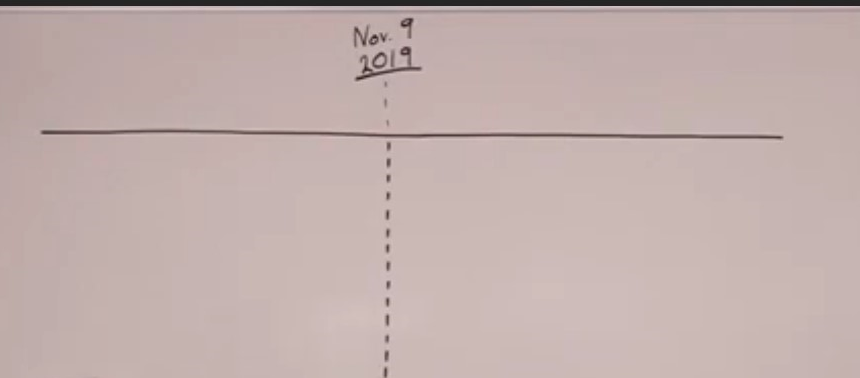 Nov. 9
2019